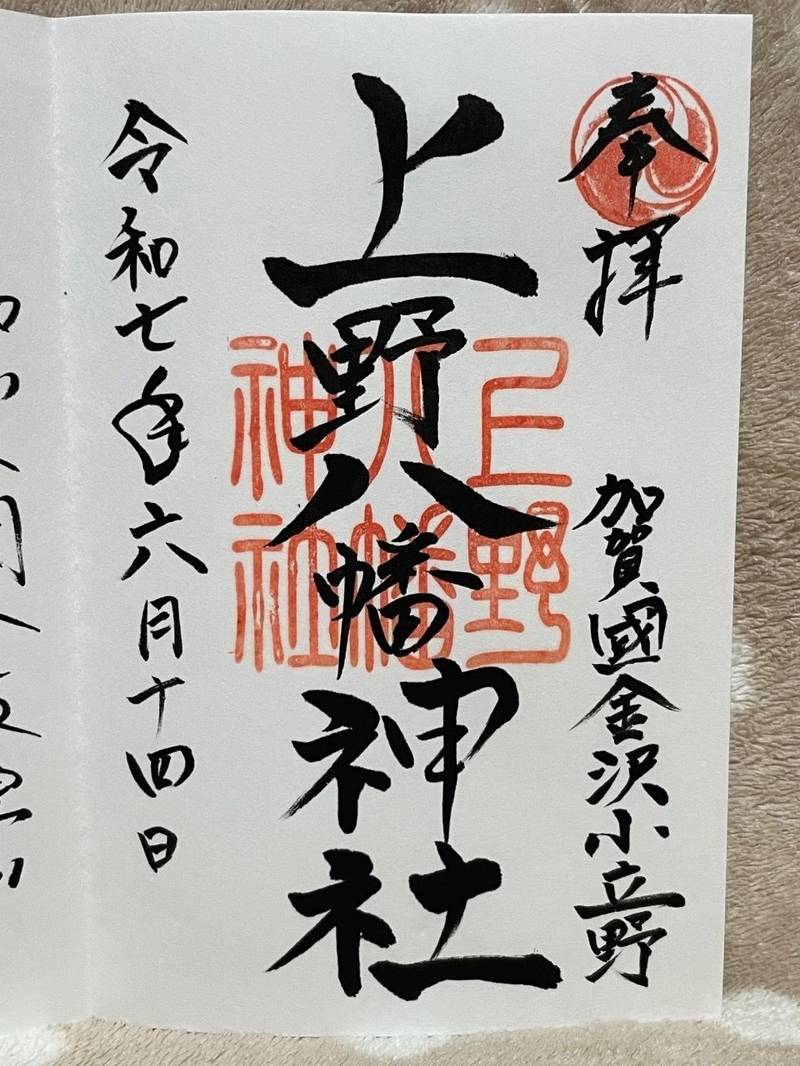 奉拝
加賀國金沢小立野
上野八幡神社
上野
八幡
神社
令和七年六月十四日